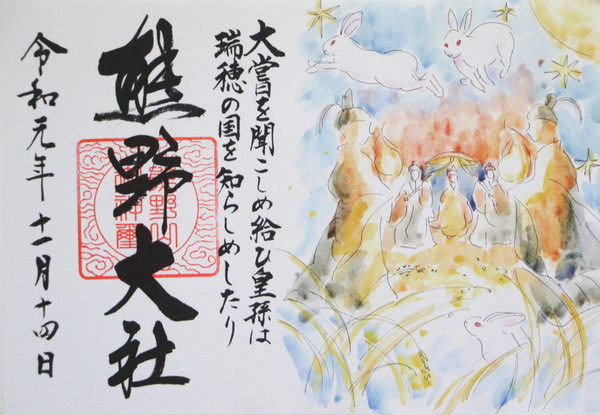 大嘗を聞こしめ給ひ皇孫は
瑞穂の国を知らしめしたり
熊野大社
令和元年十一月十四日